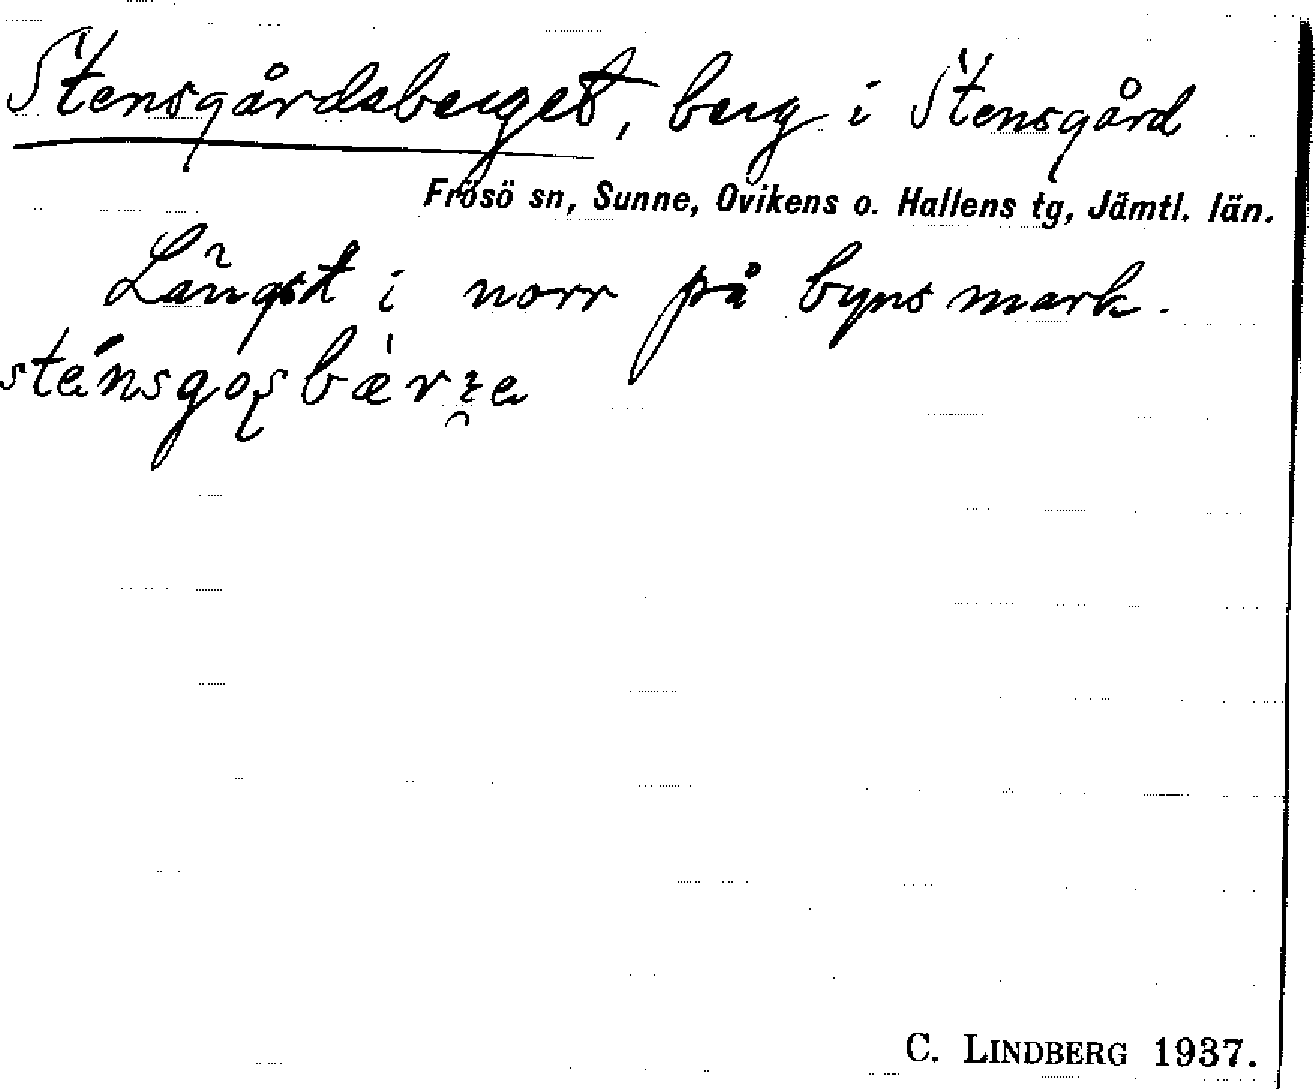 Stensgårdsberget, berg i Stensgård
Frösö sn, Sunne, Ovikens o. Hallens tg, Jämtl. län.
Längst i norr på byns mark.
C. LINDBERG 1937.